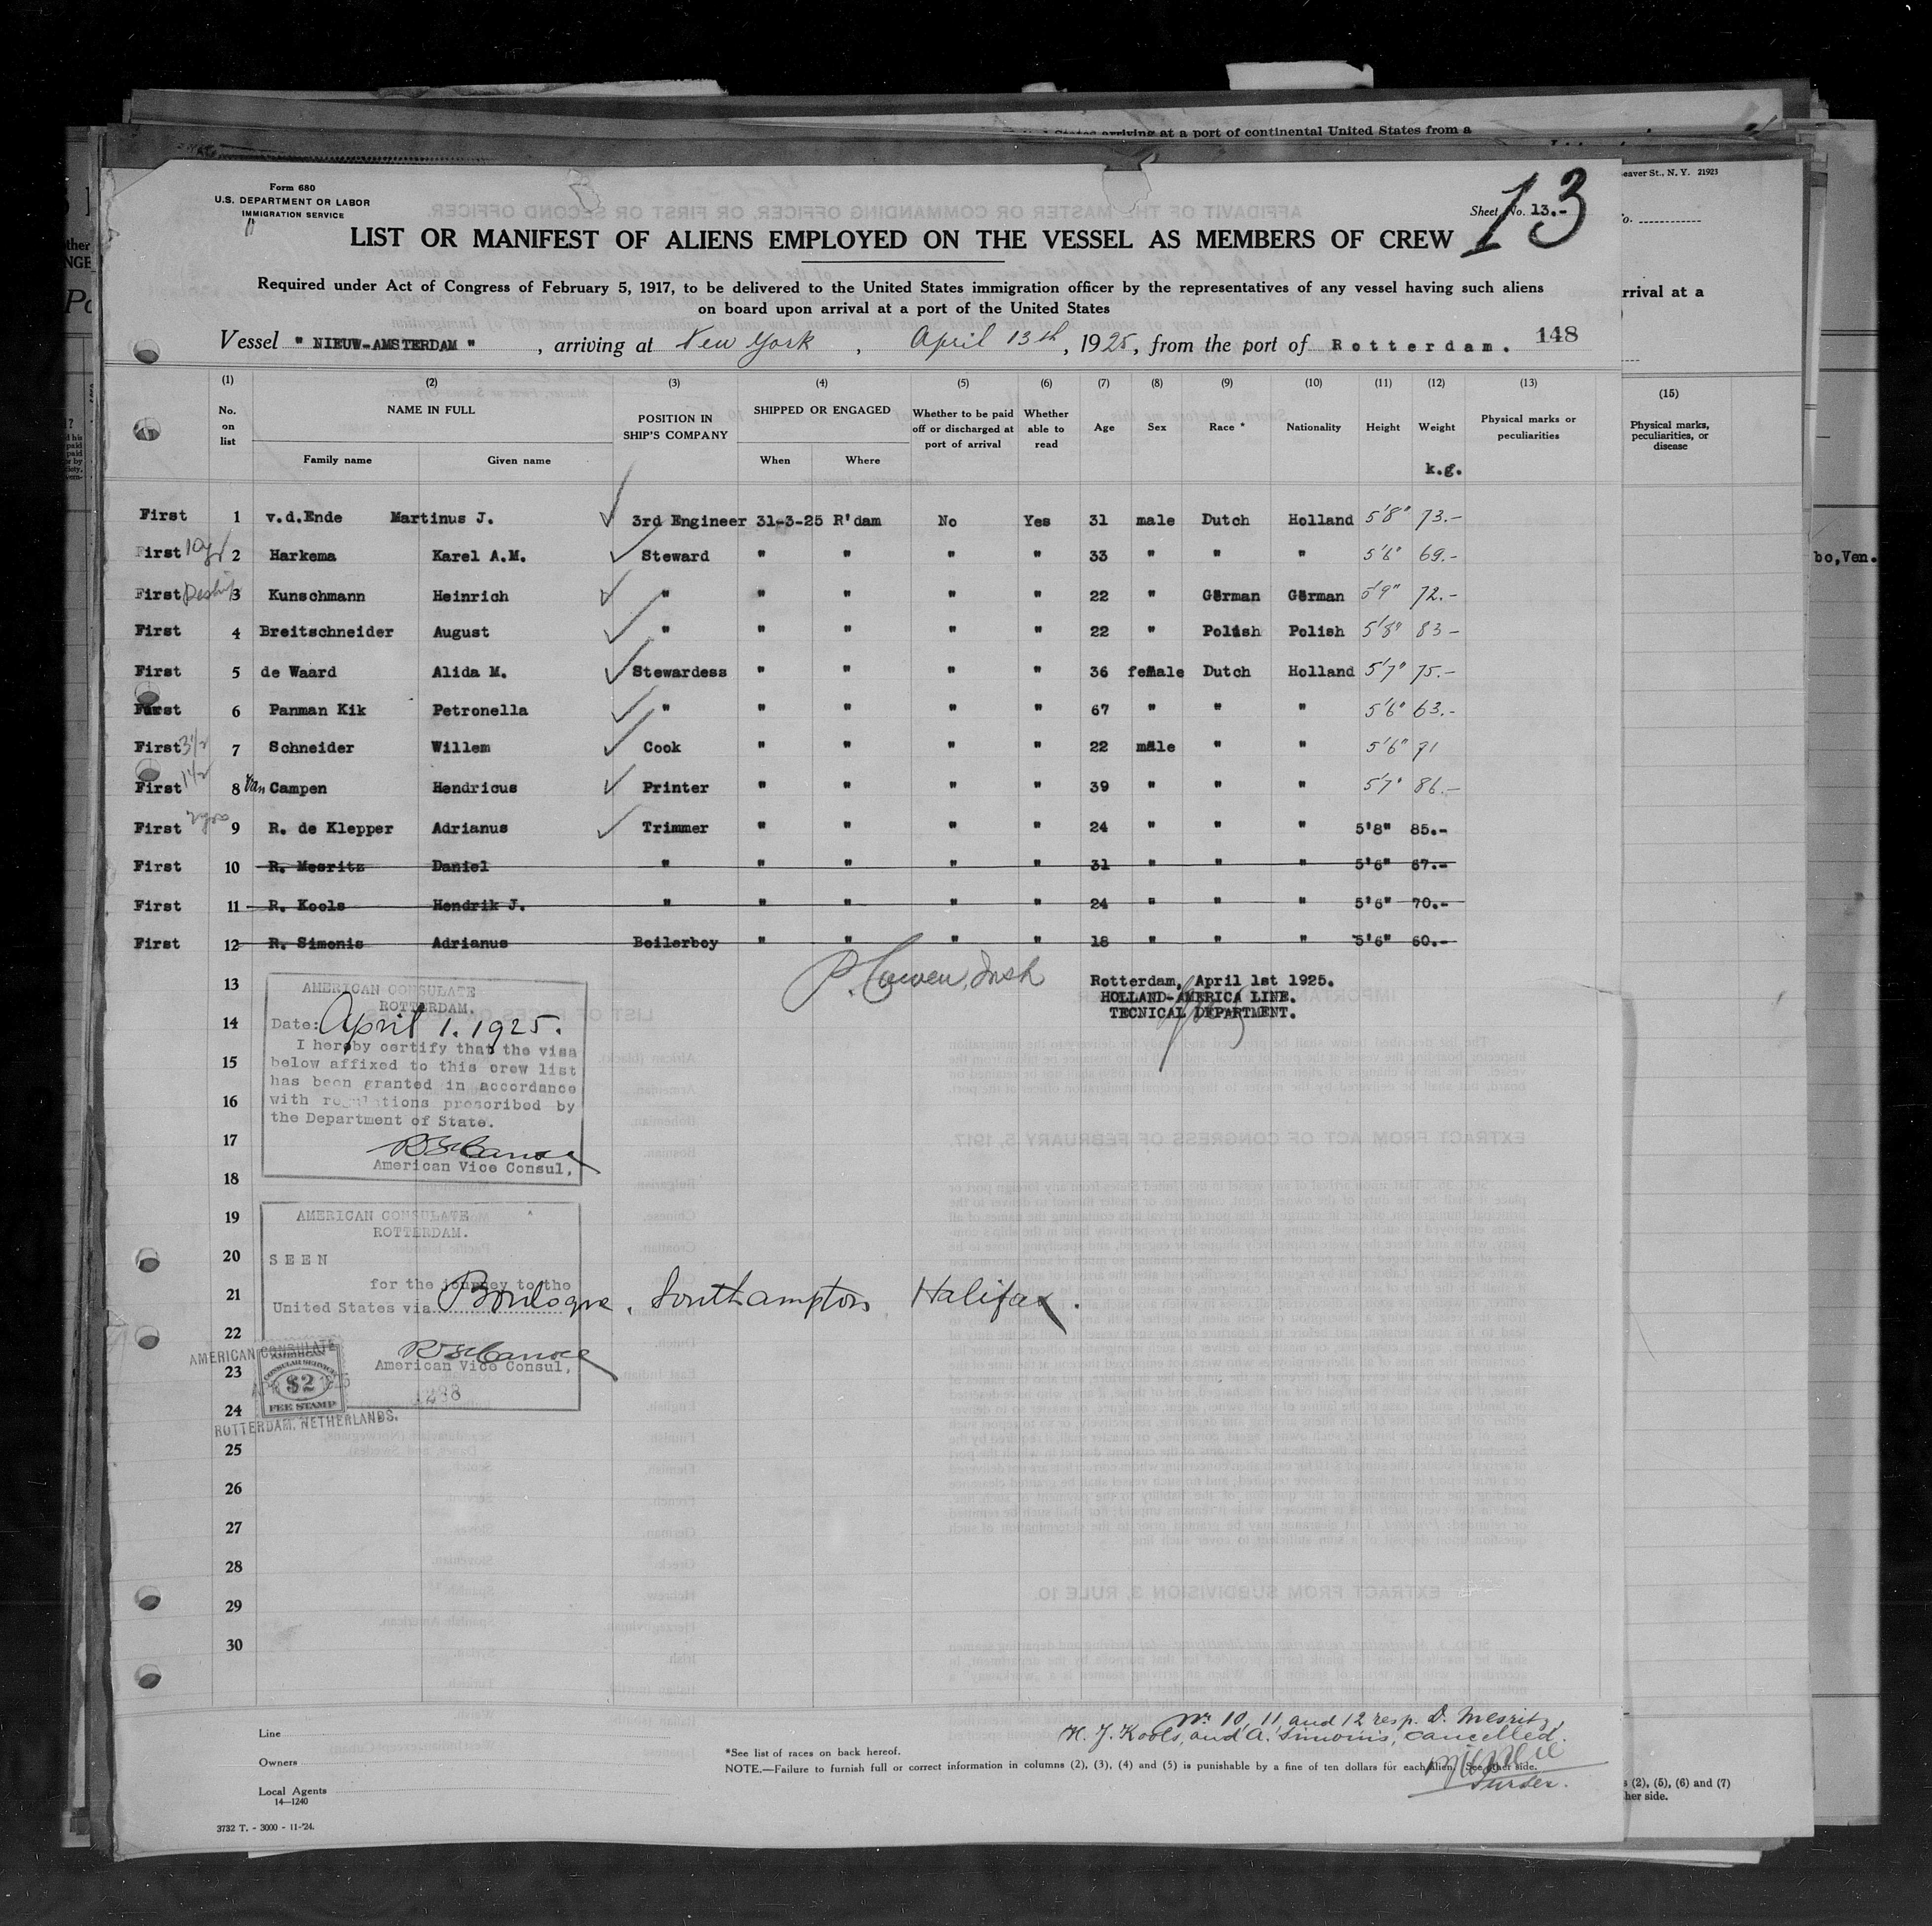 States arriving at a port of continental United States from a
eaver St., N. Y. 21923
Form 680
U.S. DEPARTMENT OF LABOR
IMMIGRATION SERVICE
Sheet No. 13.-
13
LIST OR MANIFEST OF ALIENS EMPLOYED ON THE VESSEL AS MEMBERS OF CREW
Required under Act of Congress of February 5, 1917, to be delivered to the United States immigration officer by the representatives of any vessel having such aliens
on board upon arrival at a port of the United States
rrival at a
Vessel " NIEUW-AMSTERDAM " , arriving at New York , April 13th, 1925, from the port of Rotterdam. 148
(1) (2) (3) (4) (5) (6) (7) (8) (9) (10) (11) (12) (13) (15)
No. on list
NAME IN FULL
Family name Given name
POSITION IN SHIP'S COMPANY
SHIPPED OR ENGAGED
When Where
Whether to be paid off or discharged at port of arrival
Whether able to read
Age Sex Race * Nationality Height Weight
k.g.
Physical marks or peculiarities
Physical marks, peculiarities, or disease
First 1 v.d.Ende Martinus J. 3rd Engineer 31-3-25 R'dam No Yes 31 male Dutch Holland 5'8" 73.-
First 2 Harkema Karel A.M. Steward " " " " 33 " " " 5'6" 69.-
bo,Ven.
First 3 Kunschmann Heinrich " " " " " 22 " German German 5'9" 72.-
First 4 Breitschneider August " " " " " 22 " Polish Polish 5'8" 83 -
First 5 de Waard Alida M. Stewardess " " " " 36 female Dutch Holland 5'7" 75.-
First 6 Panman Kik Petronella " " " " " 67 " " " 5'6" 63.-
First 3½ 7 Schneider Willem Cook " " " " 22 male " " 5'6" 71
First 8 van Campen Hendricus Printer " " " " 39 " " " 5'7" 86.-
First 9 R. de Klepper Adrianus Trimmer " " " " 24 " " " 5'8" 85.-
First 10 R. Mesritz Daniel " " " " " 31 " " " 5'6" 67.-
First 11 R. Kools Hendrik J. " " " " " 24 " " " 5'6" 70.-
First 12 R. Simonis Adrianus Boilerboy " " " " 18 " " " 5'6" 60.-
Rotterdam, April 1st 1925.
HOLLAND-AMERICA LINE.
TECNICAL DEPARTMENT.
13
14
15
16
17
18
19
20
21
22
23
24
25
26
27
28
29
30
AMERICAN CONSULATE
ROTTERDAM.
Date: April 1. 1925.
I hereby certify that the visa
below affixed to this crew list
has been granted in accordance
with regulations prescribed by
the Department of State.
American Vice Consul,
AMERICAN CONSULATE
ROTTERDAM.
SEEN
for the journey to the
United States via Boulogne, Southampton Halifax.
American Vice Consul,
1288
AMERICAN CONSULATE
AMERICAN
CONSULAR SERVICE
$2
FEE STAMP
ROTTERDAM, NETHERLANDS.
Nr. 10, 11 and 12 resp. D. Mesritz,
H. J. Kools, and A. Simonis, cancelled.
Purser.
Line
Owners
Local Agents
14—1240
*See list of races on back hereof.
NOTE.—Failure to furnish full or correct information in columns (2), (3), (4) and (5) is punishable by a fine of ten dollars for each alien. See other side.
s (2), (5), (6) and (7)
her side.
3732 T. - 3000 - 11-'24.